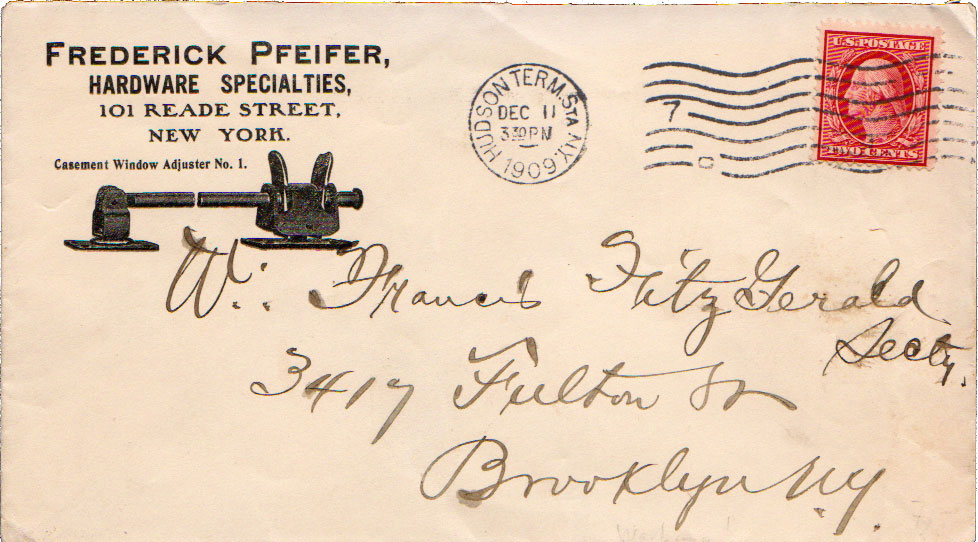 FREDERICK PFEIFER,
HARDWARE SPECIALTIES,
101 READE STREET,
NEW YORK.
Casement Window Adjuster No. 1.
HUDSON TERM. STA. N.Y.
DEC 11
3 30 PM
1909
7
C
U.S. POSTAGE
TWO CENTS
W. Francis FitzGerald
Secty.
3417 Fulton St
Brooklyn NY.